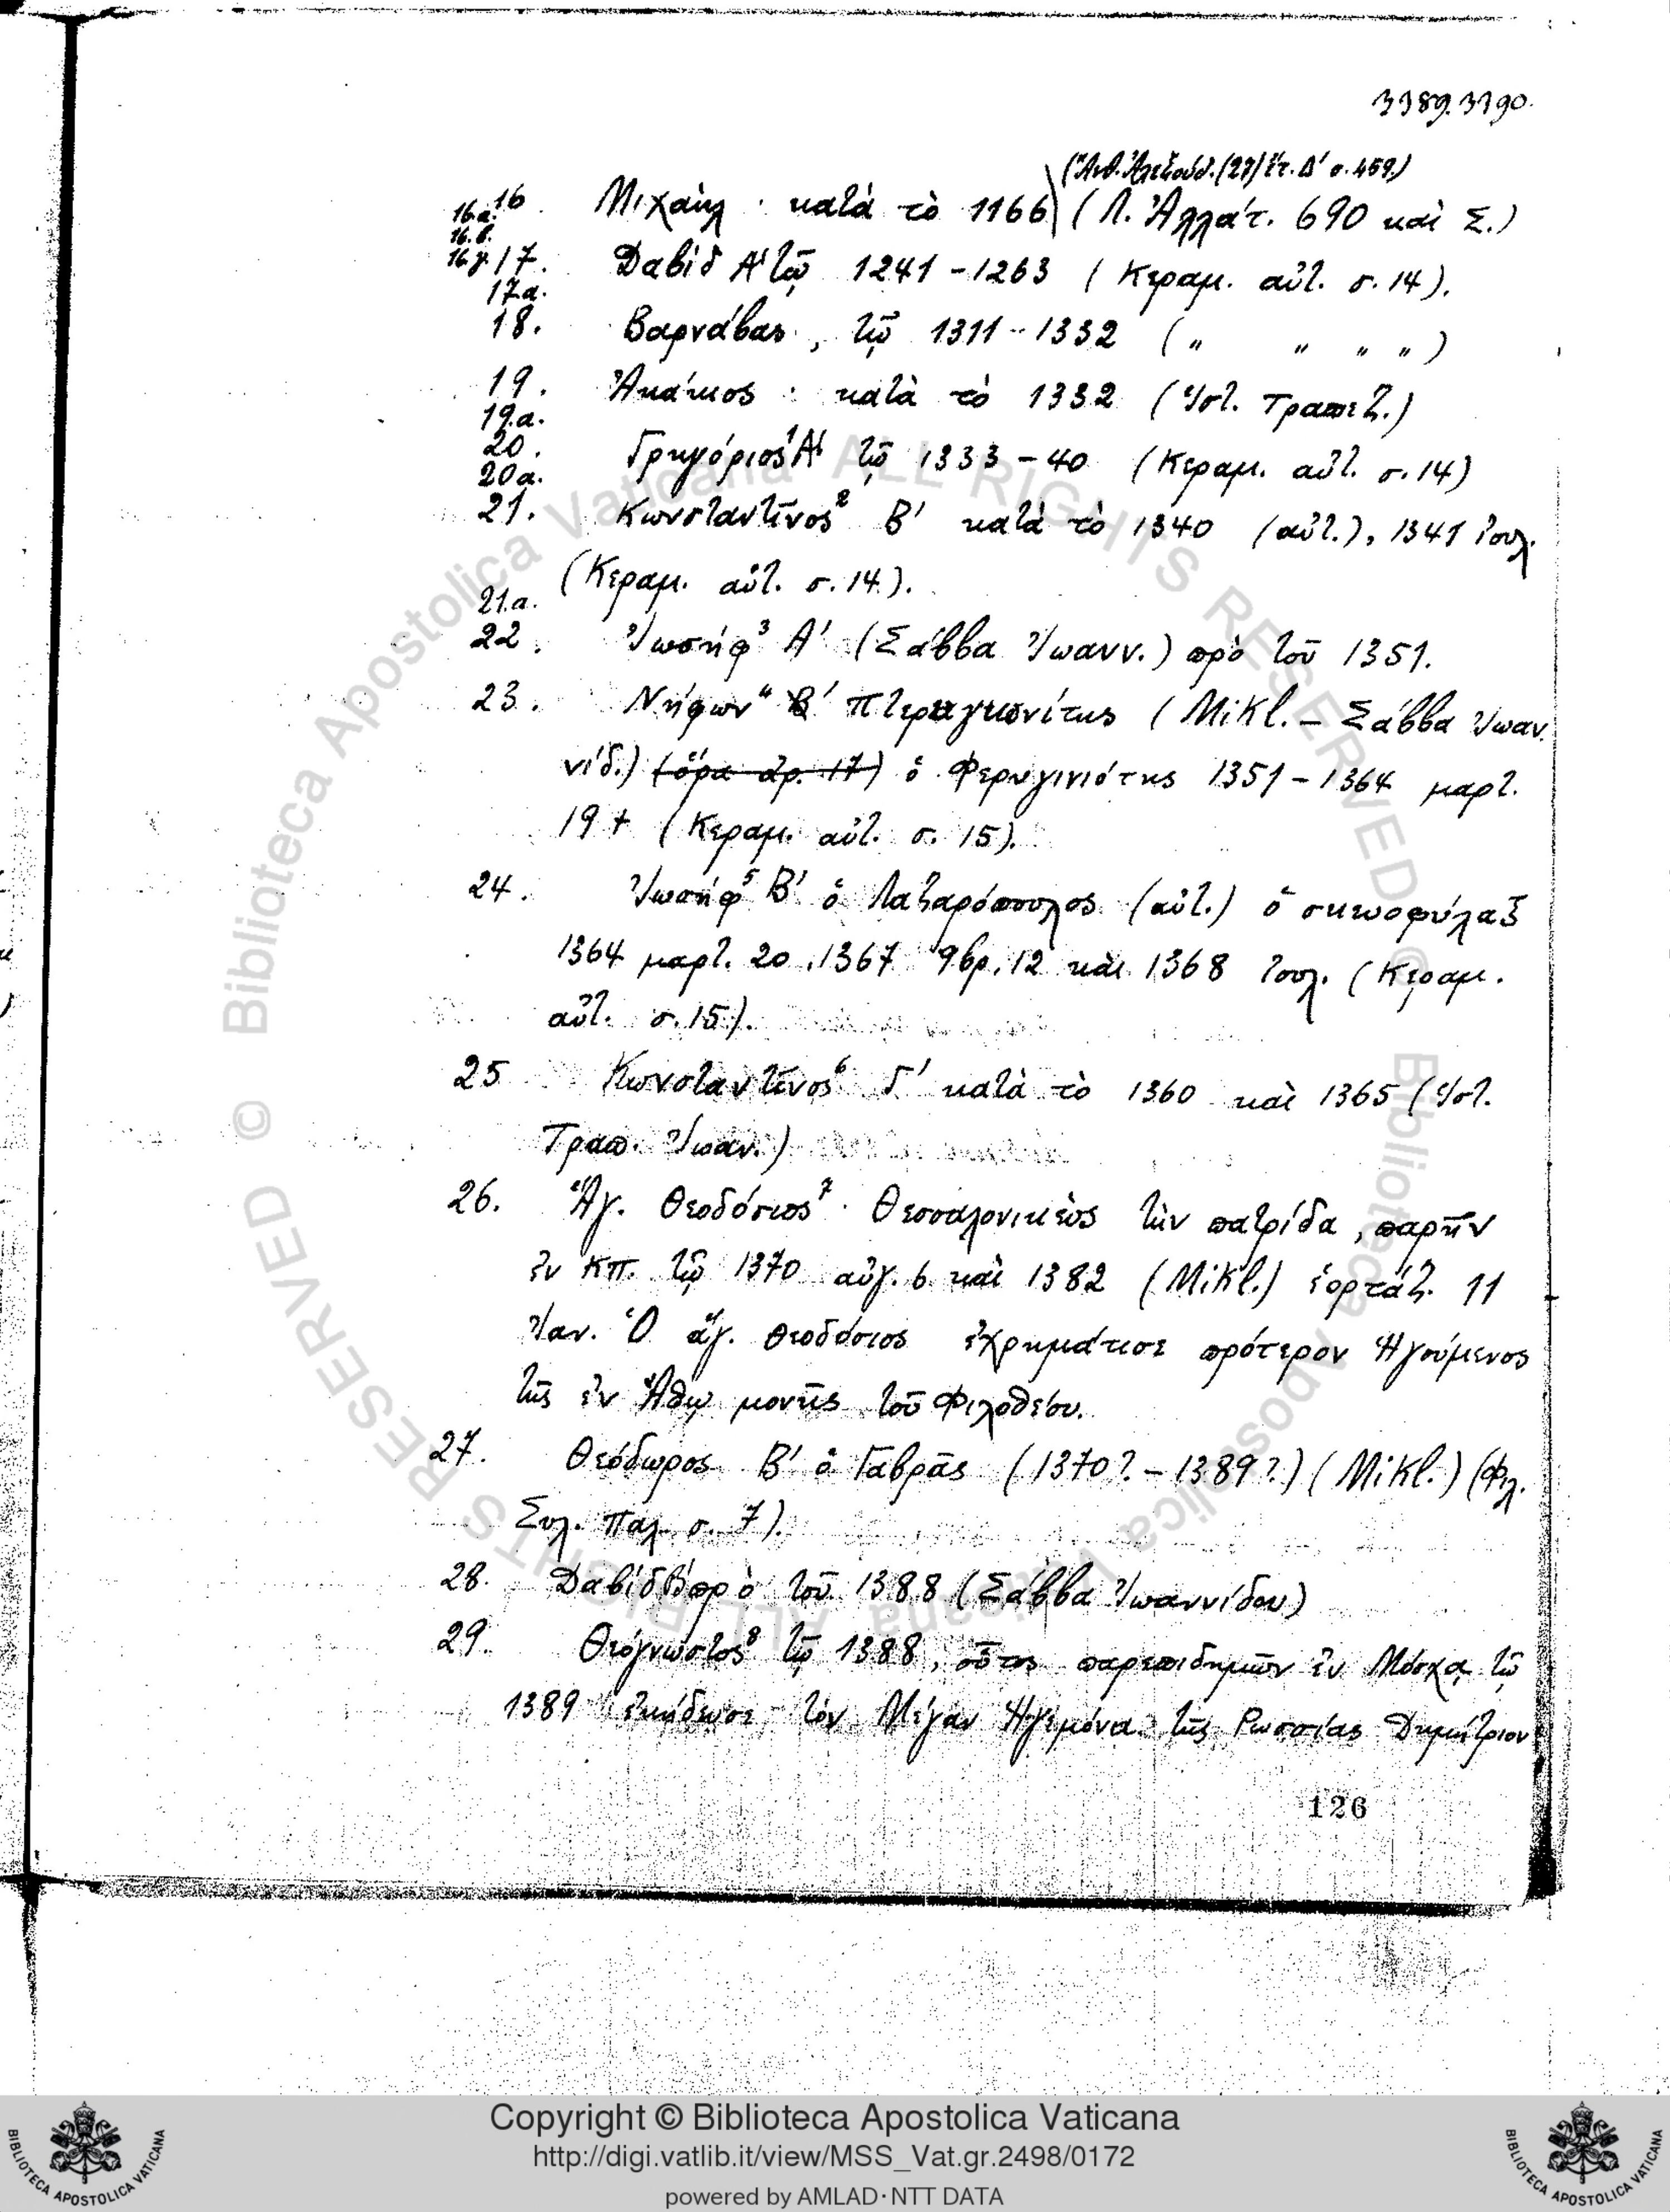 3389.3390.
(Ἀνθ. Ἀλεξούδ. (27) ἔτ. Δ' σ. 459.)
16. Μιχαὴλ · κατὰ τὸ 1166 (Λ. Ἀλλάτ. 690 καὶ Σ.)
16.α.
16.β.
16.γ. 17. Δαβὶδ Α' τῷ 1241-1263 (Κεραμ. αὐτ. σ. 14).
17.α.
18. Βαρνάβας, τῷ 1311-1332 (" " " ")
19. Ἀκάκιος · κατὰ τὸ 1332 (Ἱστ. Τραπεζ.)
19.α.
20. Γρηγόριος¹ Α' τῷ 1333-40 (Κεραμ. αὐτ. σ. 14)
20α.
21. Κωνσταντῖνος² Β' κατὰ τὸ 1340 (αὐτ.), 1341 Ἰουλ.
(Κεραμ. αὐτ. σ. 14).
21.α.
22. Ἰωσὴφ³ Α' (Σάββα Ἰωανν.) πρὸ τοῦ 1351.
23. Νήφων⁴ Β' Πτερυγιονίτης (Mikl. – Σάββα Ἰωαν
νίδ.) (ὅρα ἀρ. 17) ὁ Φερυγινιότης 1351-1364 μαρτ.
19 + (Κεραμ. αὐτ. σ. 15).
24. Ἰωσὴφ⁵ Β' ὁ Λαζαρόπουλος (αὐτ.) ὁ σκευοφύλαξ
1364 μαρτ. 20, 1367 9βρ. 12 καὶ 1368 Ἰουλ. (Κεραμ.
αὐτ. σ. 15).
25 Κωνσταντῖνος⁶ Γ' κατὰ τὸ 1360 καὶ 1365 (Ἱστ.
Τραπ. Ἰωαν.)
26. Ἅγ. Θεοδόσιος⁷ · Θεσσαλονικεὺς τὴν πατρίδα, παρῆν
ἐν Κπ. τῷ 1370 αὐγ. 6 καὶ 1382 (Mikl.) ἑορτάζ. 11
Ἰαν. Ὁ ἅγ. Θεοδόσιος ἐχρημάτισε πρότερον Ἡγούμενος
τῆς ἐν Ἄθῳ μονῆς τοῦ Φιλοθέου.
27. Θεόδωρος Β' ὁ Γαβρᾶς (1370?-1389?) (Mikl.) (Φιλ.
Συλ. Παλ. σ. 7).
28. Δαβὶδ Β' πρὸ τοῦ 1388 (Σάββα Ἰωαννίδου)
29. Θεόγνωστος⁸ τῷ 1388, οὗτος παρεπιδημῶν ἐν Μόσχᾳ τῷ
1389 ἐκήδευσε τὸν Μέγαν Ἡγεμόνα τῆς Ρωσσίας Δημήτριον
126
© Biblioteca Apostolica Vaticana ALL RIGHTS RESERVED
© Biblioteca Apostolica Vaticana ALL RIGHTS RESERVED
Copyright © Biblioteca Apostolica Vaticana
http://digi.vatlib.it/view/MSS_Vat.gr.2498/0172
powered by AMLAD·NTT DATA
BIBLIOTECA APOSTOLICA VATICANA
BIBLIOTECA APOSTOLICA VATICANA